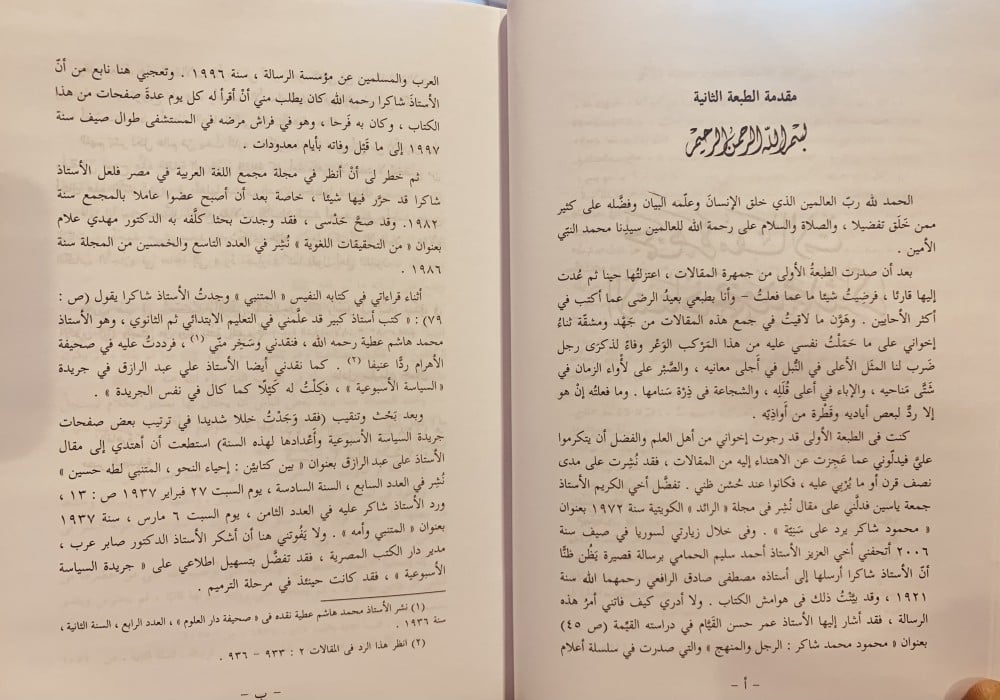 مقدمة الطبعة الثانية
بسم الله الرحمن الرحيم
الحمد لله ربّ العالمين الذي خلق الإنسانَ وعلّمه البيان وفضَّله على كثير
ممن خَلَق تفضيلا ، والصلاة والسلام على رحمة الله للعالمين سيدِنا محمد النبّي
الأمين .
بعد أن صدرت الطبعةُ الأولى من جمهرة المقالات ، اعتزلتُها حينا ثم عُدت
إليها قارئا ، فرضِيتُ شيئا ما عما فعلتُ – وأنا بطبعي بعيدُ الرضى عما أكتب في
أكثر الأحايين . وهَوَّن ما لاقيتُ في جمع هذه المقالات من جَهْد ومشقّة ثناءُ
إخواني على ما حَمَلْتُ نفسي عليه من هذا المَرْكب الوَعْر وفاءً لذكرَى رجل
ضَرب لنا المثَل الأعلى في النُّبل في أجلى معانيه ، والصَّبْر على لأْواء الزمان في
شَتَّى مَناحيه ، والإباء في أعلى قُلَلِه ، والشجاعة في ذِرْة سَنامها . وما فعلتُه إنْ هو
إلا ردٌّ لبعص أياديه وقَطْرة من أَواذِيّه .
كنت فى الطبعة الأولى قد رجوت إخواني من أهل العلم والفضل أن يتكرموا
عليَّ فيدلّوني عما عَجِزت عن الاهتداء إليه من المقالات ، فقد نشِرت على مدى
نصف قرن أو ما يُرْبِي عليه ، فكانوا عند حُسْن ظني . تفضَّل أخي الكريم الأستاذ
جمعة ياسين فدلَّني على مقال نُشِر فى مجلة « الرائد » الكويتية سنة ١٩٧٢ بعنوان
« محمود شاكر يرد على سَنِيَّة » . وفى خلال زيارتي لسوريا في صيف سنة
٢٠٠٦ أتحفني أخي العزيز الأستاذ أحمد سليم الحمامي برسالة قصيرة يَظُن ظنًّا
أنّ الأستاذ شاكرا أرسلها إلى أستاذه مصطفى صادق الرافعي رحمهما الله سنة
١٩٢١ ، وقد بيَّنْتُ ذلك فى هوامش الكتاب . ولا أدري كيف فاتني أمرُ هذه
الرسالة ، فقد أشار إليها الأستاذ عمر حسن القَيَّام في دراسته القيِّمة (ص ٤٥)
بعنوان « محمود محمد شاكر : الرجل والمنهج » والتي صدرت في سلسلة أعلام
– أ –
العرب والمسلمين عن مؤسسة الرسالة ، سنة ١٩٩٦ . وتعجبي هنا نابع من أنّ
الأستاذ شاكرا رحمه الله كان يطلب مني أنْ أقرأ له كل يوم عدةَ صفحات من هذا
الكتاب ، وكان به فَرِحا ، وهو في فراش مرضه في المستشفى طوال صيف سنة
١٩٩٧ إلى ما قَبْل وفاته بأيام معدودات .
ثم خطر لى أنْ أنظر في مجلة مجمع اللغة العربية في مصر فلعل الأستاذ
شاكرا قد حرَّر فيها شيئا ، خاصة بعد أن أصبح عضوا عاملا بالمجمع سنة
١٩٨٢. وقد صحَّ حَدْسى ، فقد وجدت بحثا كلَّفه به الدكتور مهدي علام
بعنوان « من التحقيقات اللغوية » نُشِر في العدد التاسع والخمسين من المجلة سنة
١٩٨٦ .
أثناء قراءاتي في كتابه النفيس « المتنبي » وجدتُ الأستاذ شاكرا يقول (ص :
٧٩) : « كتب أستاذ كبير قد علَّمني في التعليم الابتدائي ثم الثانوي ، وهو الأستاذ
محمد هاشم عطية رحمه الله ، فنقدني وسَخِر منّي (١) ، فرددتُ عليه في صحيفة
الأهرام ردًّا عنيفا (٢) . كما نقدني أيضا الأستاذ علي عبد الرازق في جريدة
« السياسة الأسبوعية » ، فكِلْتُ له كَيْلًا كما كال في نفس الجريدة » .
وبعد بَحْث وتنقيب (فقد وَجَدْتُ خللا شديدا في ترتيب بعض صفحات
جريدة السياسة الأسبوعية وأعْدادها لهذه السنة) استطعت أن أهتدي إلى مقال
الأستاذ على عبد الرازق بعنوان « بين كتابيْن : إحياء النحو ، المتنبي لطه حسين »
نُشِر في العدد السابع ، السنة السادسة ، يوم السبت ٢٧ فبراير ١٩٣٧ ص : ١٣ ،
ورد الأستاذ شاكر عليه في العدد الثامن ، يوم السبت ٦ مارس ، سنة ١٩٣٧
بعنوان « المتنبي وأمه » . ولا يَفُوتني هنا أن أشكر الأستاذ الدكتور صابر عرب ،
مدير دار الكتب المصرية ، فقد تفضَّل بتسهيل اطلاعي على « جريدة السياسة
الأسبوعية » ، فقد كانت حينئذ في مرحلة الترميم .
(١) نشر الأستاذ محمد هاشم عطية نقده فى « صحيفة دار العلوم » ، العدد الرابع ، السنة الثانية ،
سنة ١٩٣٦ .
(٢) انظر هذا الرد فى المقالات ٢ : ٩٣٣ – ٩٣٦ .
– ب –